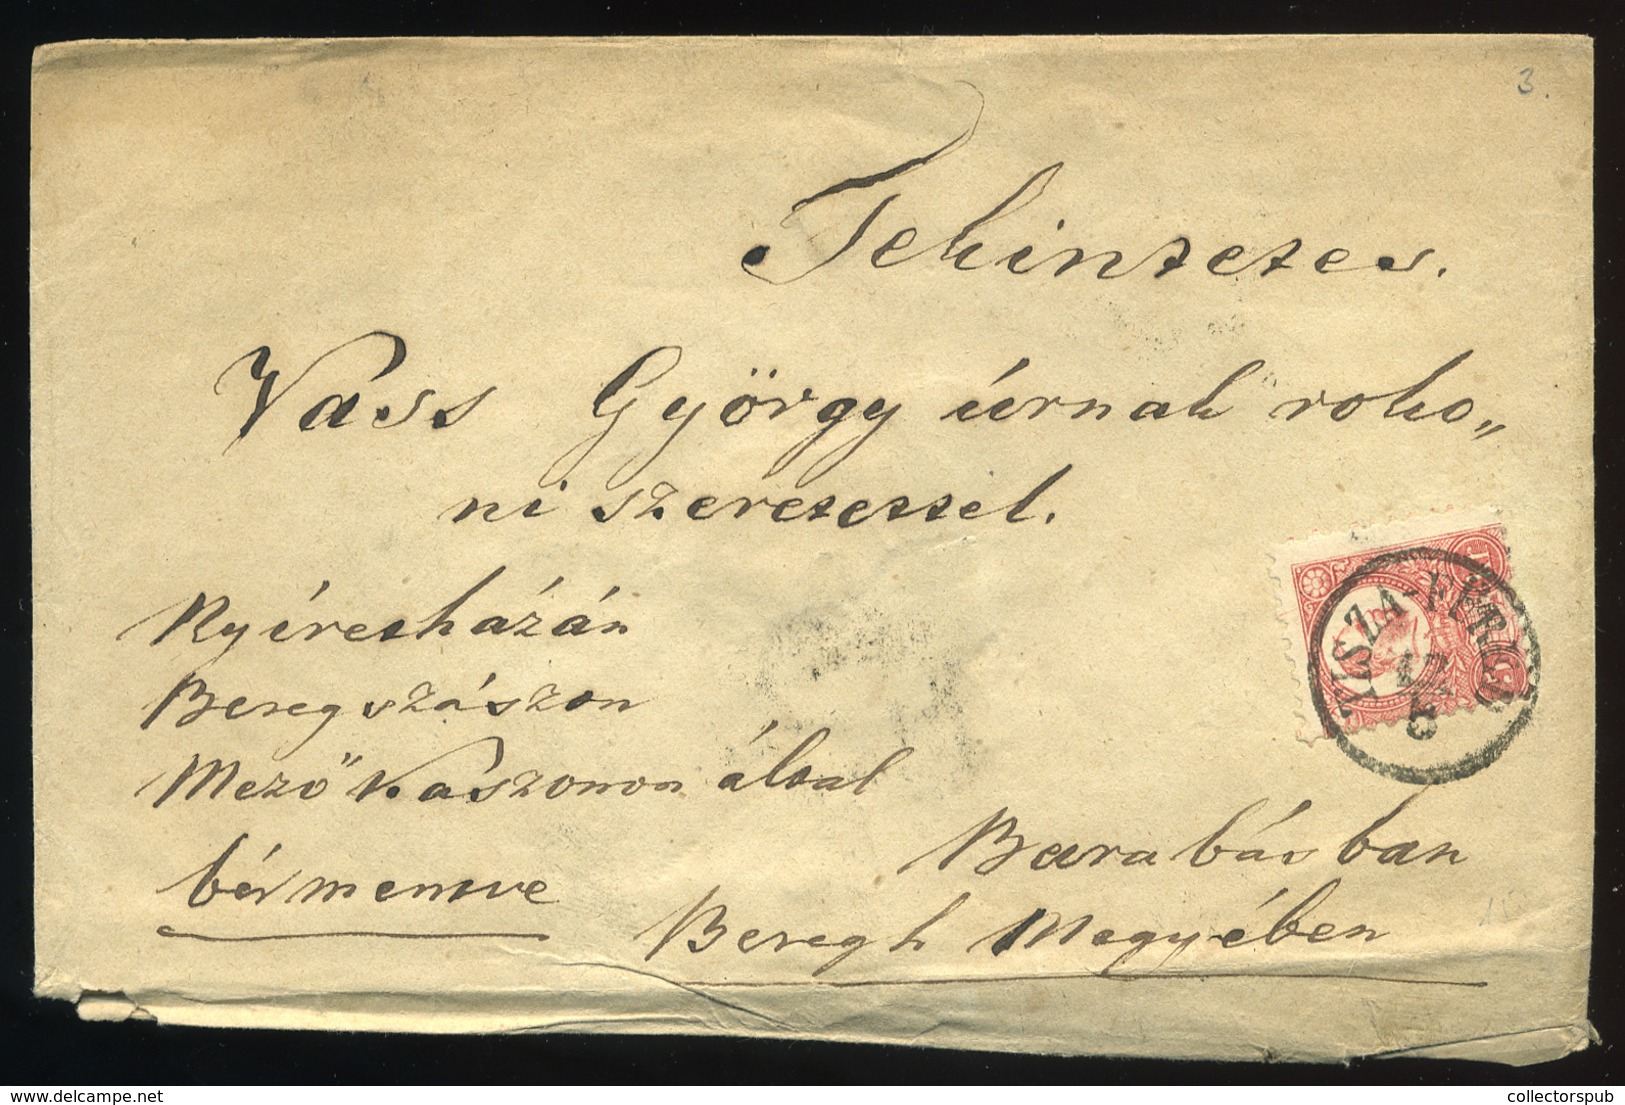 3.
Tekintetes.
Vass György úrnak roko„
ni szeretettel.
TISZA-FÜRED
Nyíregházán
Beregszászon
Mező Kaszonon által
bérmentve
Barabásban
Beregh Megyében
delcampe.net
collectorspub